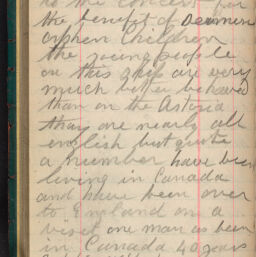 to the concert for
the benefit of Seamens
orphen Children
the young people
on this ship are very
much better behaved
than on the Astoria
thay are nearly all
english but quite
a number have been
living in Canada
and have been over
to England on a
viset one man as been
in Canada 40 years